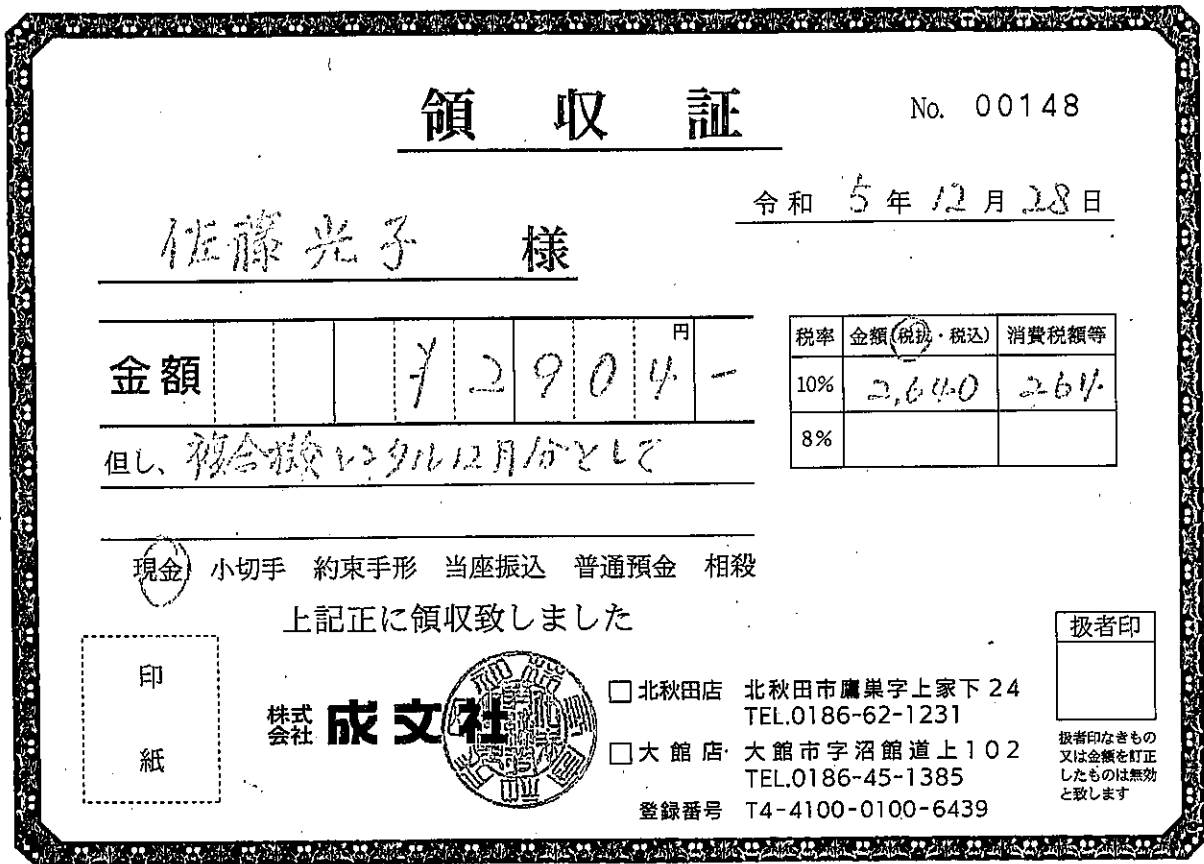 領収証
No. 00148
令和 5年 12月 28日
佐藤光子 様
金額 ¥2904- 円
税率 金額(税抜・税込) 消費税額等
10% 2,640 264
8%
但し、複合機レンタル12月分として
現金 小切手 約束手形 当座振込 普通預金 相殺
上記正に領収致しました
印紙
株式会社 成文社
□北秋田店 北秋田市鷹巣字上家下24
TEL.0186-62-1231
□大館店 大館市字沼館道上102
TEL.0186-45-1385
登録番号 T4-4100-0100-6439
扱者印
扱者印なきもの
又は金額を訂正
したものは無効
と致します